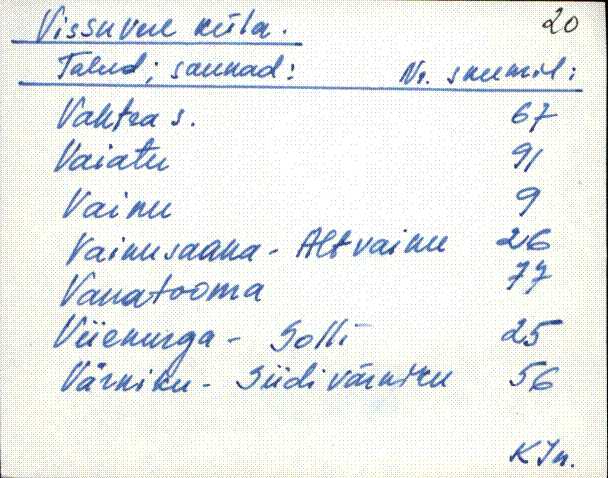 Vissuvere küla. 20
Talud; saunad: Nr. skeemil:
Vahtra s. 67
Vaiatu 91
Vainu 9
Vainusaana - Altvainu 26
Vanatooma 77
Viienurga - Solli 25
Värniku - Siidivärniku 56
KJn.